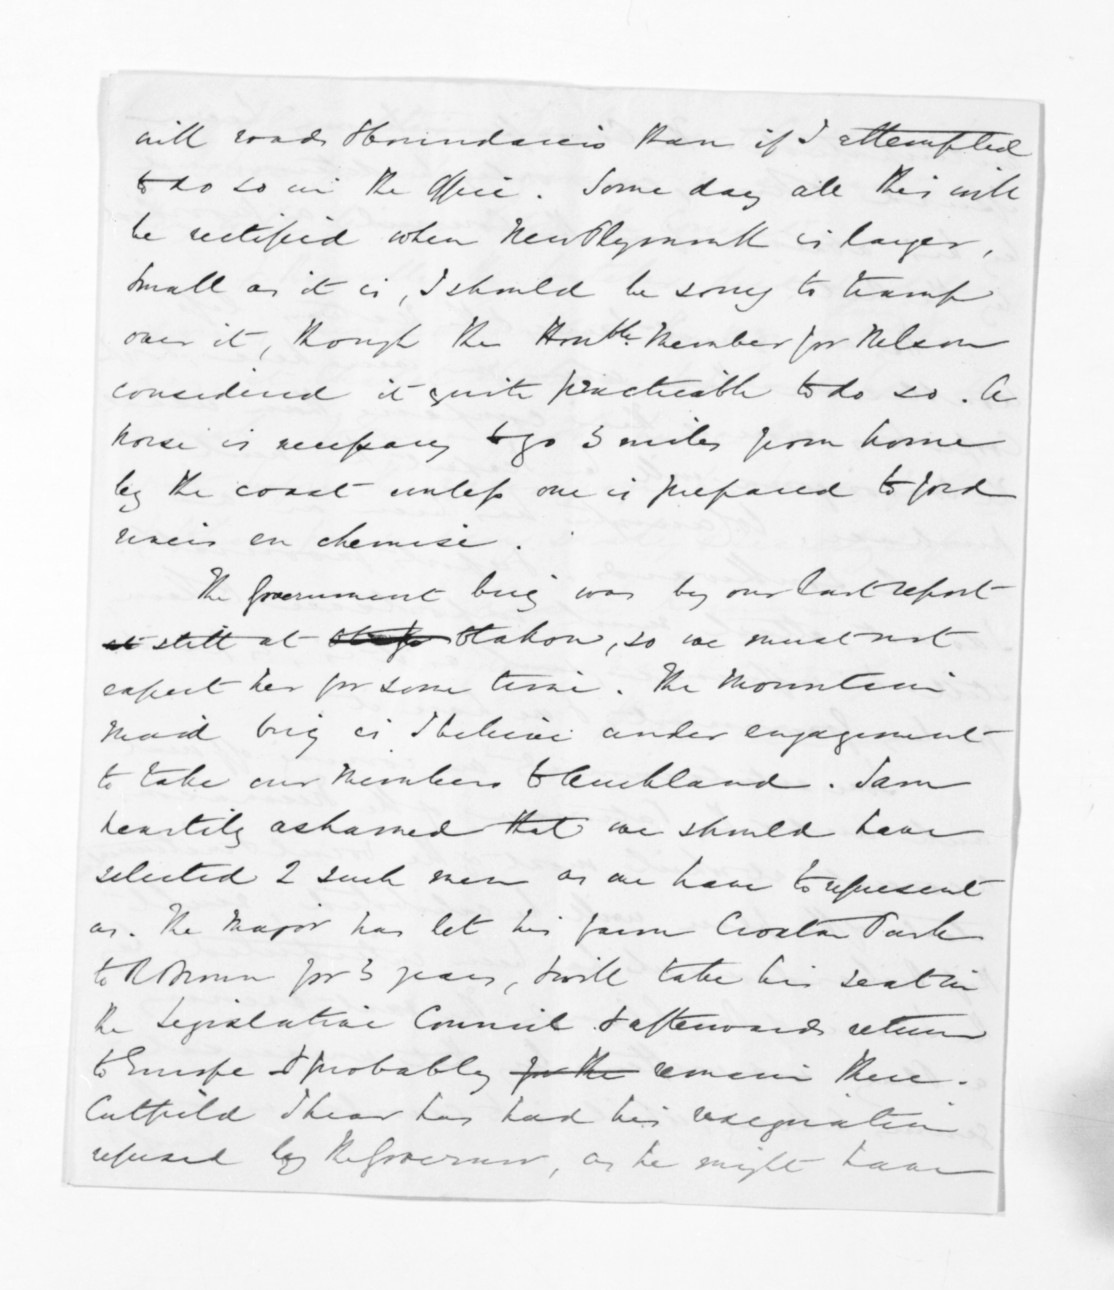 will roads & boundaries than if I attempted
to do so in the office. Some day all this will
be rectified when New Plymouth is larger,
small as it is, I should be sorry to tramp
over it, though the Honble. Member for Nelson
considered it quite practicable to do so. A
horse is necessary to go 3 miles from home
by the coast unless one is prepared to ford
rivers en chemise.
The Government brig was by our last report
at still at Otakou, so we must not
expect her for some time. The Mountain
Maid brig is I believe under engagement
to take our Members to Auckland. I am
heartily ashamed that we should have
selected 2 such men as we have to represent
us. The Major has let his farm Croxton Park
to R Brown for 3 years, & will take his seat in
the Legislative Council & afterwards return
to Europe & probably for the remain there.
Cutfield I hear has had his resignation
refused by the Governor, as he might have